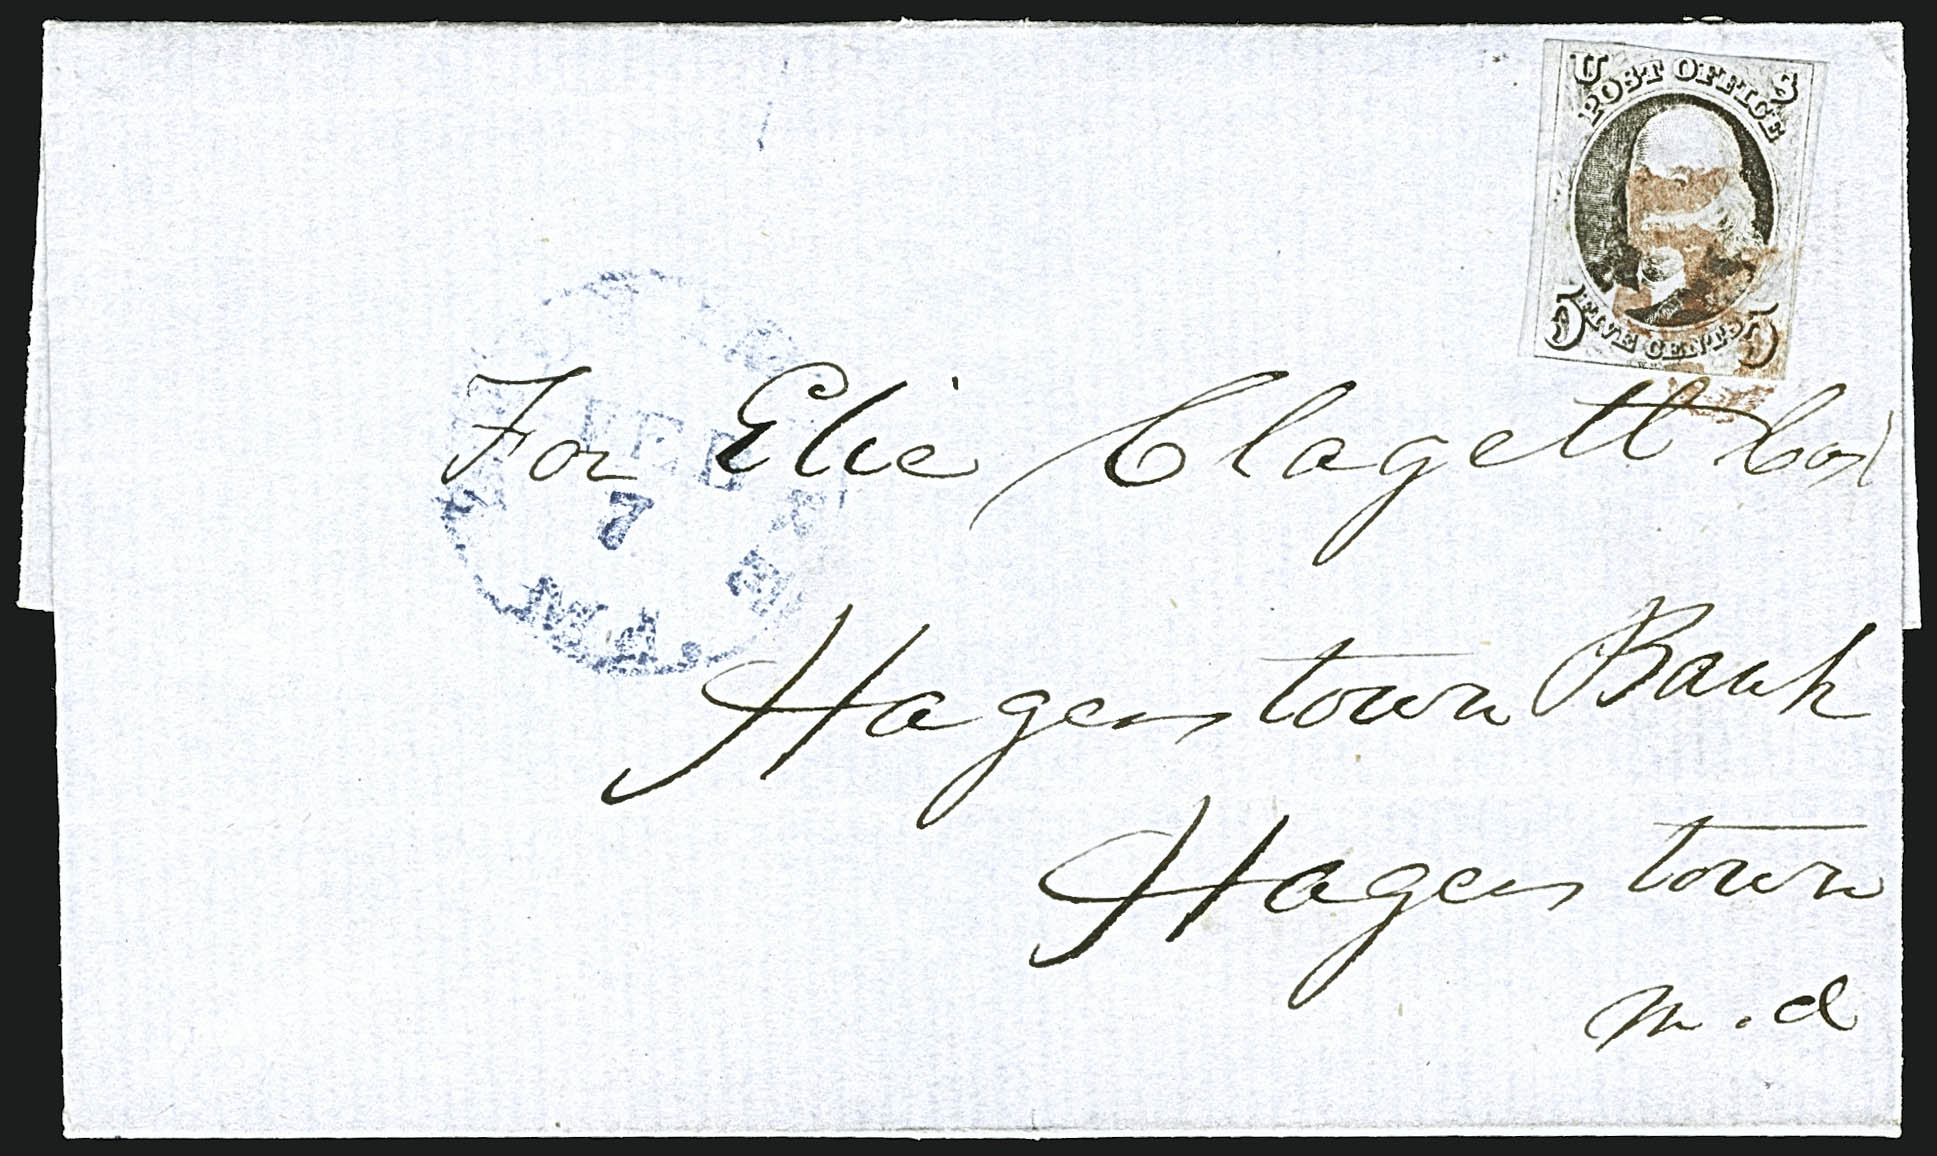 U S
POST OFFICE
FIVE CENTS
5 5
FEB
7
Md.
For Elie Clagett
Hagerstown Bank
Hagerstown
M.d